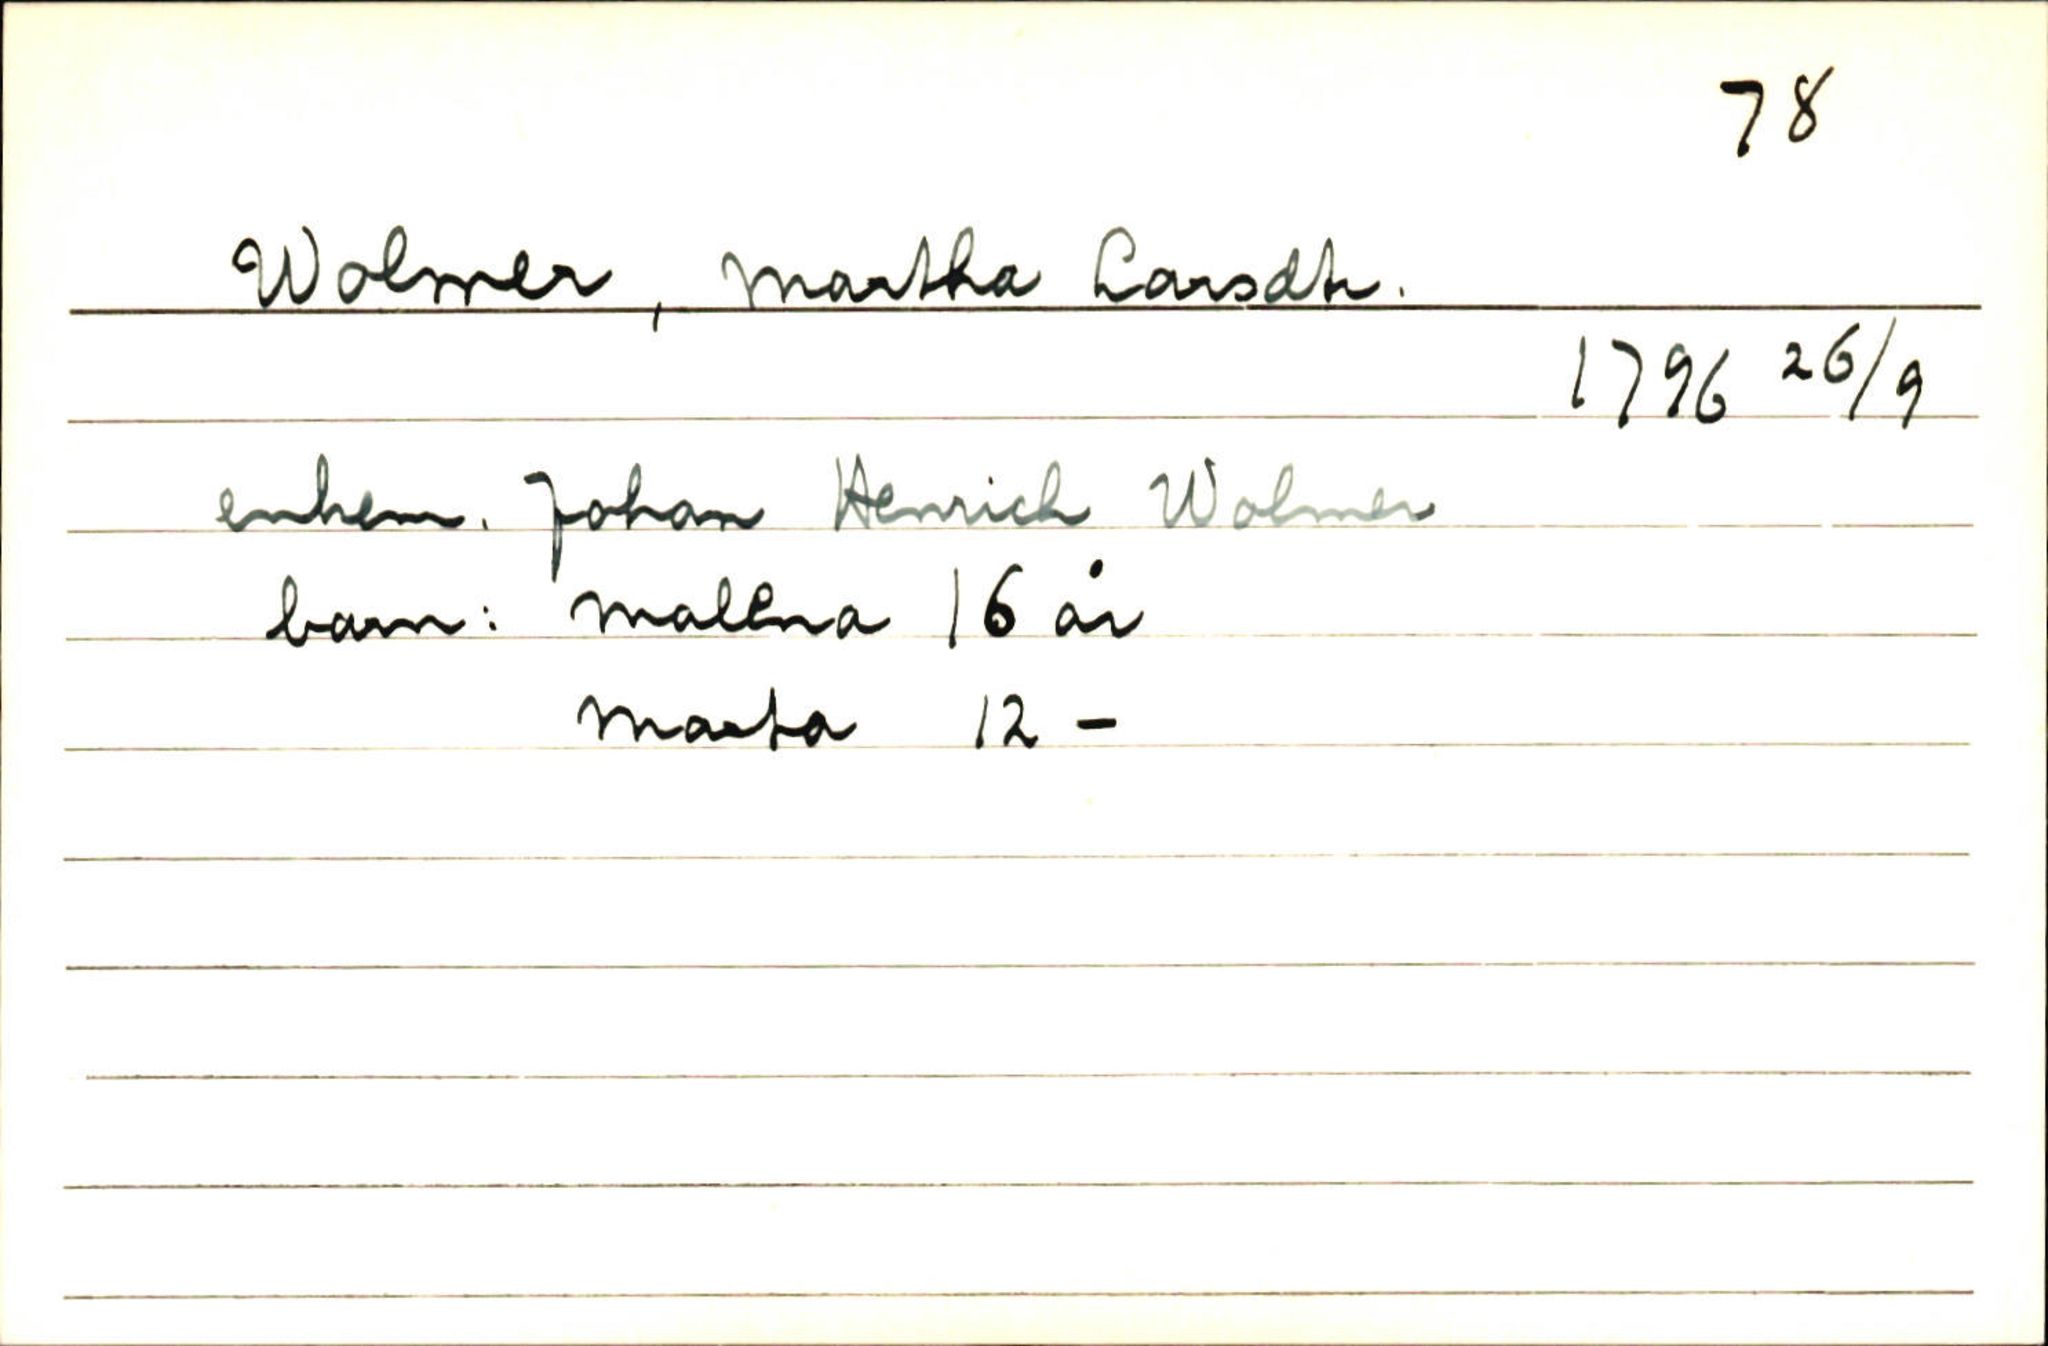 78
Wolmer, Martha Larsdtr.
1796 26/9
enkem. Johan Henrich Wolmer
barn: Malena 16 år
Marta 12 -